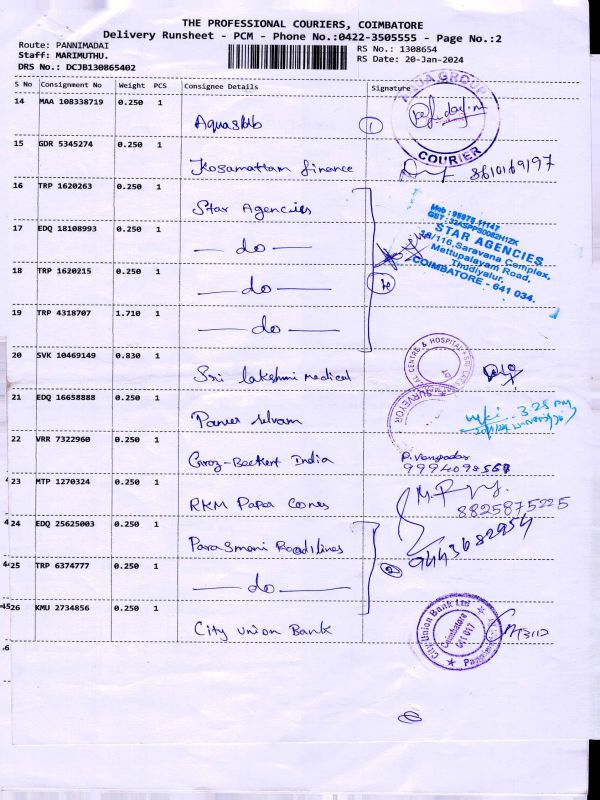 THE PROFESSIONAL COURIERS, COIMBATORE
Delivery Runsheet - PCM - Phone No.:0422-3505555 - Page No.:2
Route: PANNIMADAI
Staff: MARIMUTHU.
DRS No.: DCJB130865402
RS No.: 1308654
RS Date: 20-Jan-2024
S No Consignment No Weight PCS Consignee Details Signature
14 MAA 108338719 0.250 1
Aquasub
1
COURIER
15 GDR 5345274 0.250 1
Kosamattam finance 8610169197
16 TRP 1620263 0.250 1
Star Agencies
Mob : 95975 11147
STAR AGENCIES
18/116, Saravana Complex,
Mettupalayam Road,
Thudiyalur,
COIMBATORE - 641 034.
17 EDQ 18108993 0.250 1
do
18 TRP 1620215 0.250 1
do
19 TRP 4318707 1.710 1
do
20 SVK 10469149 0.830 1
Sri lakshmi medical
21 EDQ 16658888 0.250 1
SURVEYOR
3.25 PM
22 VRR 7322960 0.250 1
Groz-Beckert India
9994098568
23 MTP 1270324 0.250 1
RKM Paper Cones
8825875225
24 EDQ 25625003 0.250 1
Parasmani Roadlines
9443682954
25 TRP 6374777 0.250 1
do
2
26 KMU 2734856 0.250 1
City Union Bank
City Union Bank Ltd
Coimbatore
641 017